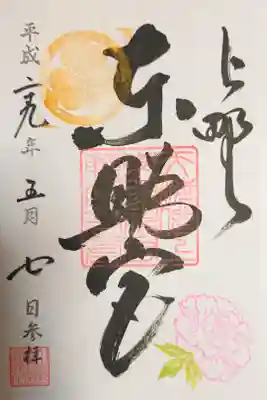 上野
東照宮
平成二九年五月七日参拝